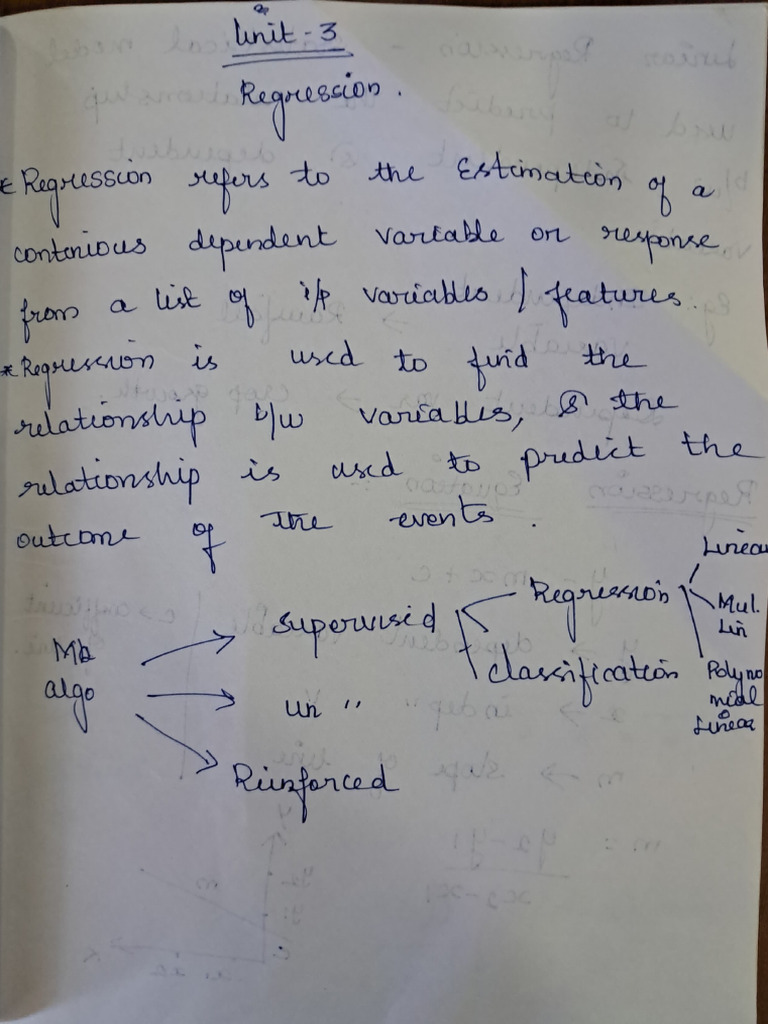 Unit - 3
Regression.
* Regression refers to the Estimation of a
continious dependent variable or response
from a list of i/p variables / features.
* Regression is used to find the
relationship b/w variables, & the
relationship is used to predict the
outcome of the events.
Linear
Regression
Mul.
Lin
Supervised
ML
algo
classification
Polyno
mial
Linear
un "
Reinforced